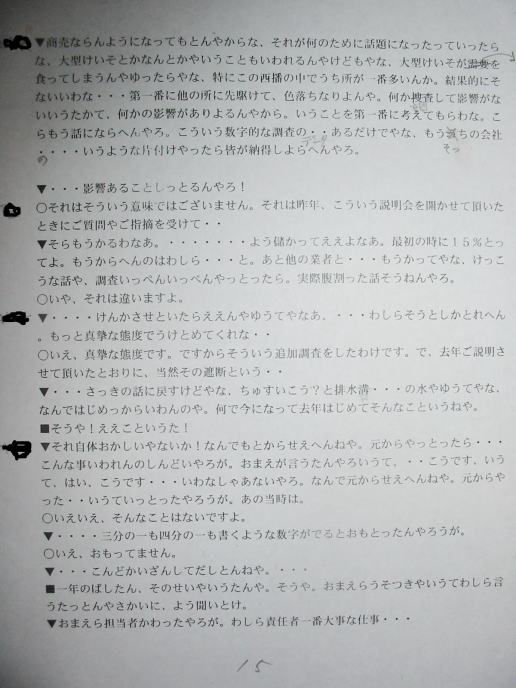 ▼商売ならんようになってもとんやからな、それが何のために話題になったっていったら
な、大型けいそとかなんとかやいうこともいわれるんやけどもやな、大型けいそが需要を
食ってしまうんやゆったらやな、特にこの西播の中でうち所が一番多いんか。結果的にそ
ないいわな・・・第一番に他の所に先駆けて、色落ちなりよんや。何か捜査して影響がな
いいうたかて、何かの影響がありよるんやから。いうことを第一番に考えてもらわな。こ
らもう話にならへんやろ。こういう数字的な調査の・・あるだけでやな、もう ちの会社
・・・・いうような片付けやったら皆が納得しよらへんやろ。
の
データ
そっ
▼・・・影響あることしっとるんやろ！
○それはそういう意味ではございません。それは昨年、こういう説明会を開かせて頂いた
ときにご質問やご指摘を受けて・・
▼そらもうかるわなあ。・・・・・・・よう儲かってええよなあ。最初の時に１５％とっ
てよ。もうからへんのはわしら・・・と。あと他の業者と・・・もうかってやな、けっこ
うな話や、調査いっぺんいっぺんやっとったら。実際腹割った話そうねんやろ。
○いや、それは違いますよ。
▼・・・・けんかさせといたらええんやゆうてやなあ、・・・わしらそうとしかとれへん
。もっと真摯な態度でうけとめてくれな・・
○いえ、真摯な態度です。ですからそういう追加調査をしたわけです。で、去年ご説明さ
せて頂いたとおりに、当然その遮断という・・
▼・・・さっきの話に戻すけどやな、ちゅすいこう？と排水溝・・・の水やゆうてやな、
なんではじめっからいわんのや。何で今になって去年はじめてそんなこというねや。
■そうや！ええこというた！
▼それ自体おかしいやないか！なんでもとからせえへんねや。元からやっとったら・・・
こんな事いわれんのしんどいやろが。おまえが言うたんやろいうて、・・こうです、いう
て、はい、こうです・・・いわなしゃあないやろ。なんで元からせえへんねや。元からや
った・・いうていっとったやろうが。あの当時は。
○いえいえ、そんなことはないですよ。
▼・・・・三分の一も四分の一も書くような数字がでるとおもとったんやろうが。
○いえ、おもってません。
▼・・・こんどかいざんしてだしとんねや。・・・
■一年のばしたん、そのせいやいうたんや。そうや。おまえらうそつきやいうてわしら言
うたっとんやさかいに、よう聞いとけ。
▼おまえら担当者かわったやろが。わしら責任者一番大事な仕事・・・
15